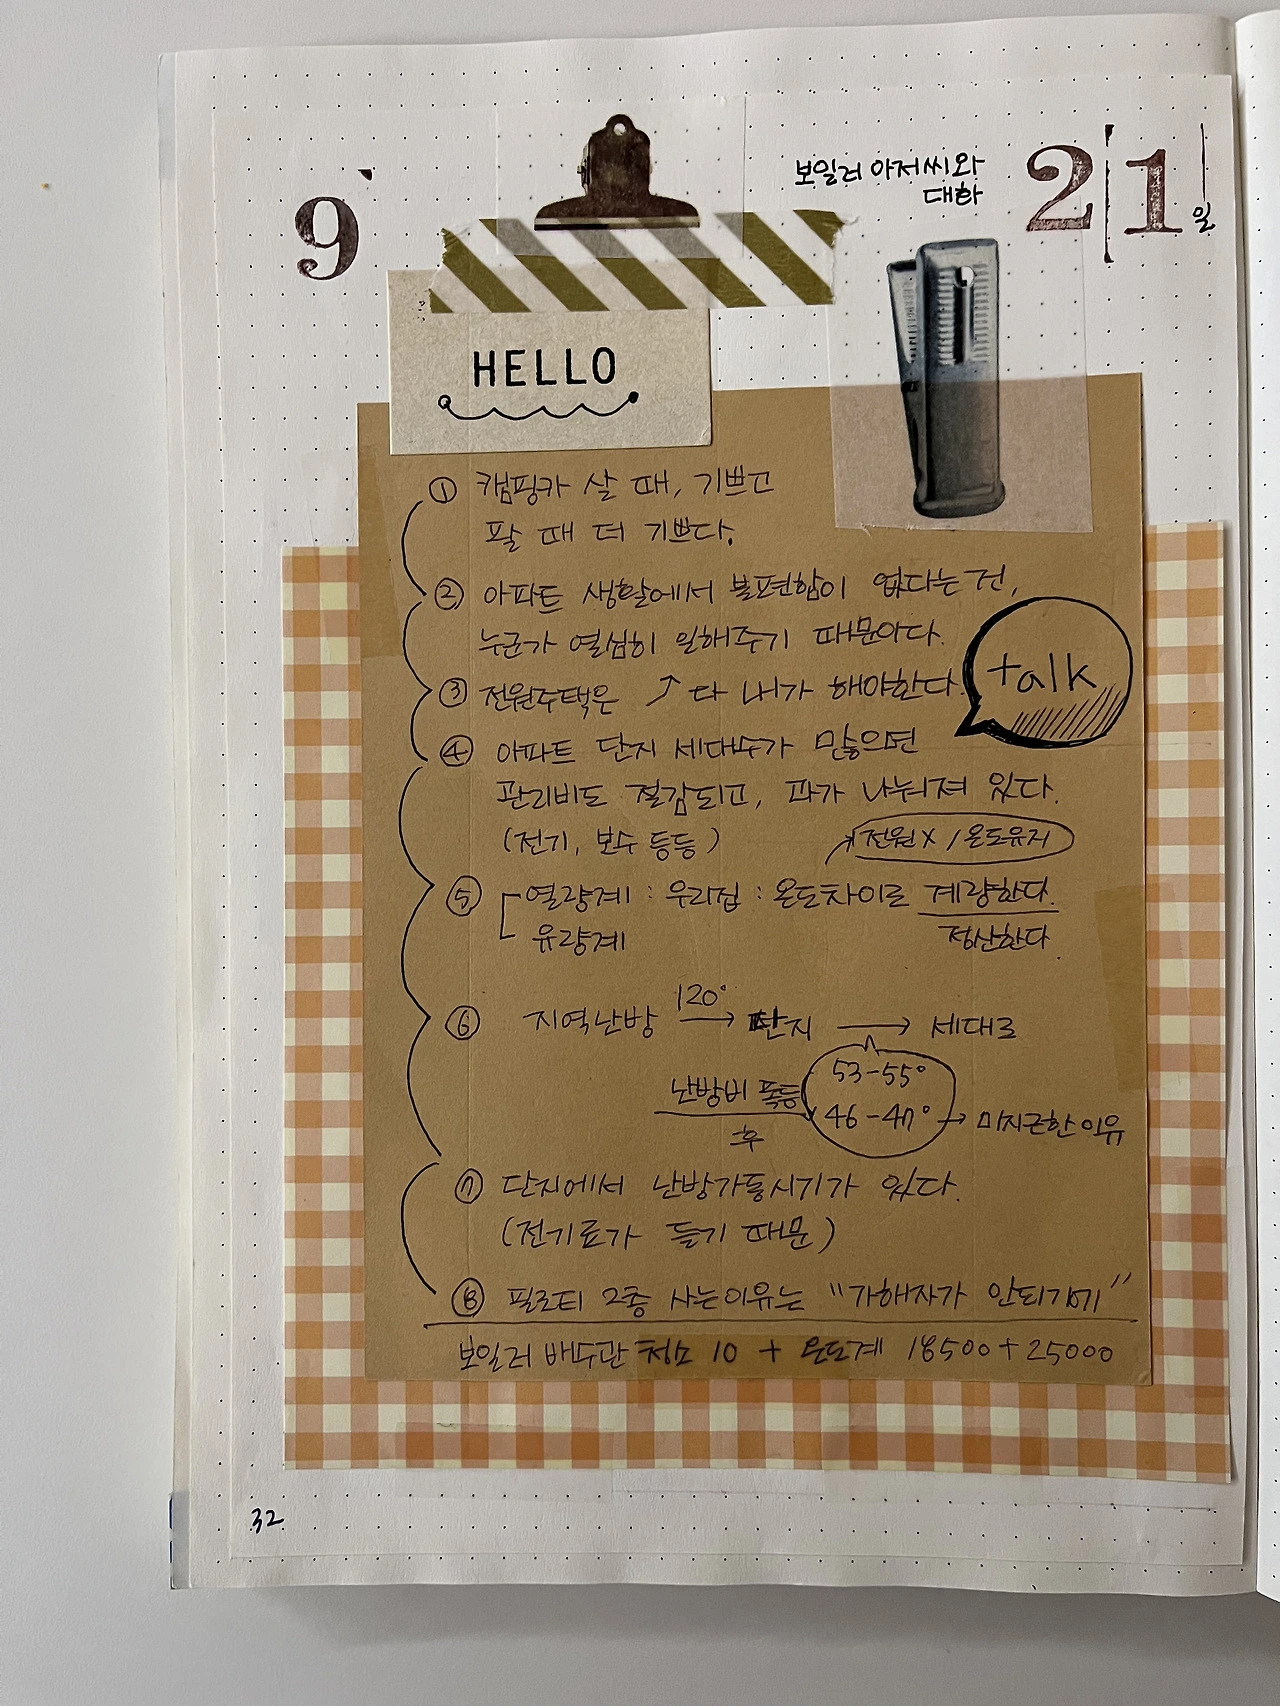 9
보일러 아저씨와
대화
21일
HELLO
① 캠핑카 살 때, 기쁘고
팔 때 더 기쁘다.
② 아파트 생활에서 불편함이 없다는 건,
누군가 열심히 일해주기 때문이다.
③ 전원주택은 ↗ 다 내가 해야한다.
talk
④ 아파트 단지 세대수가 많으면
관리비도 절감되고, 과가 나눠져 있다.
(전기, 보수 등등)
전원X / 온도유지
⑤ 열량계 : 우리집 : 온도차이로 계량한다.
유량계 정산한다
120°
⑥ 지역난방 → 단지 → 세대로
53-55°
난방비 폭등 46-47° → 미지근한 이유
후
⑦ 단지에서 난방가동시기가 있다.
(전기료가 들기 때문)
⑧ 필로티 2층 사는이유는 "가해자가 안되기"
보일러 배수관 청소 10 + 온도계 18500+25000
32